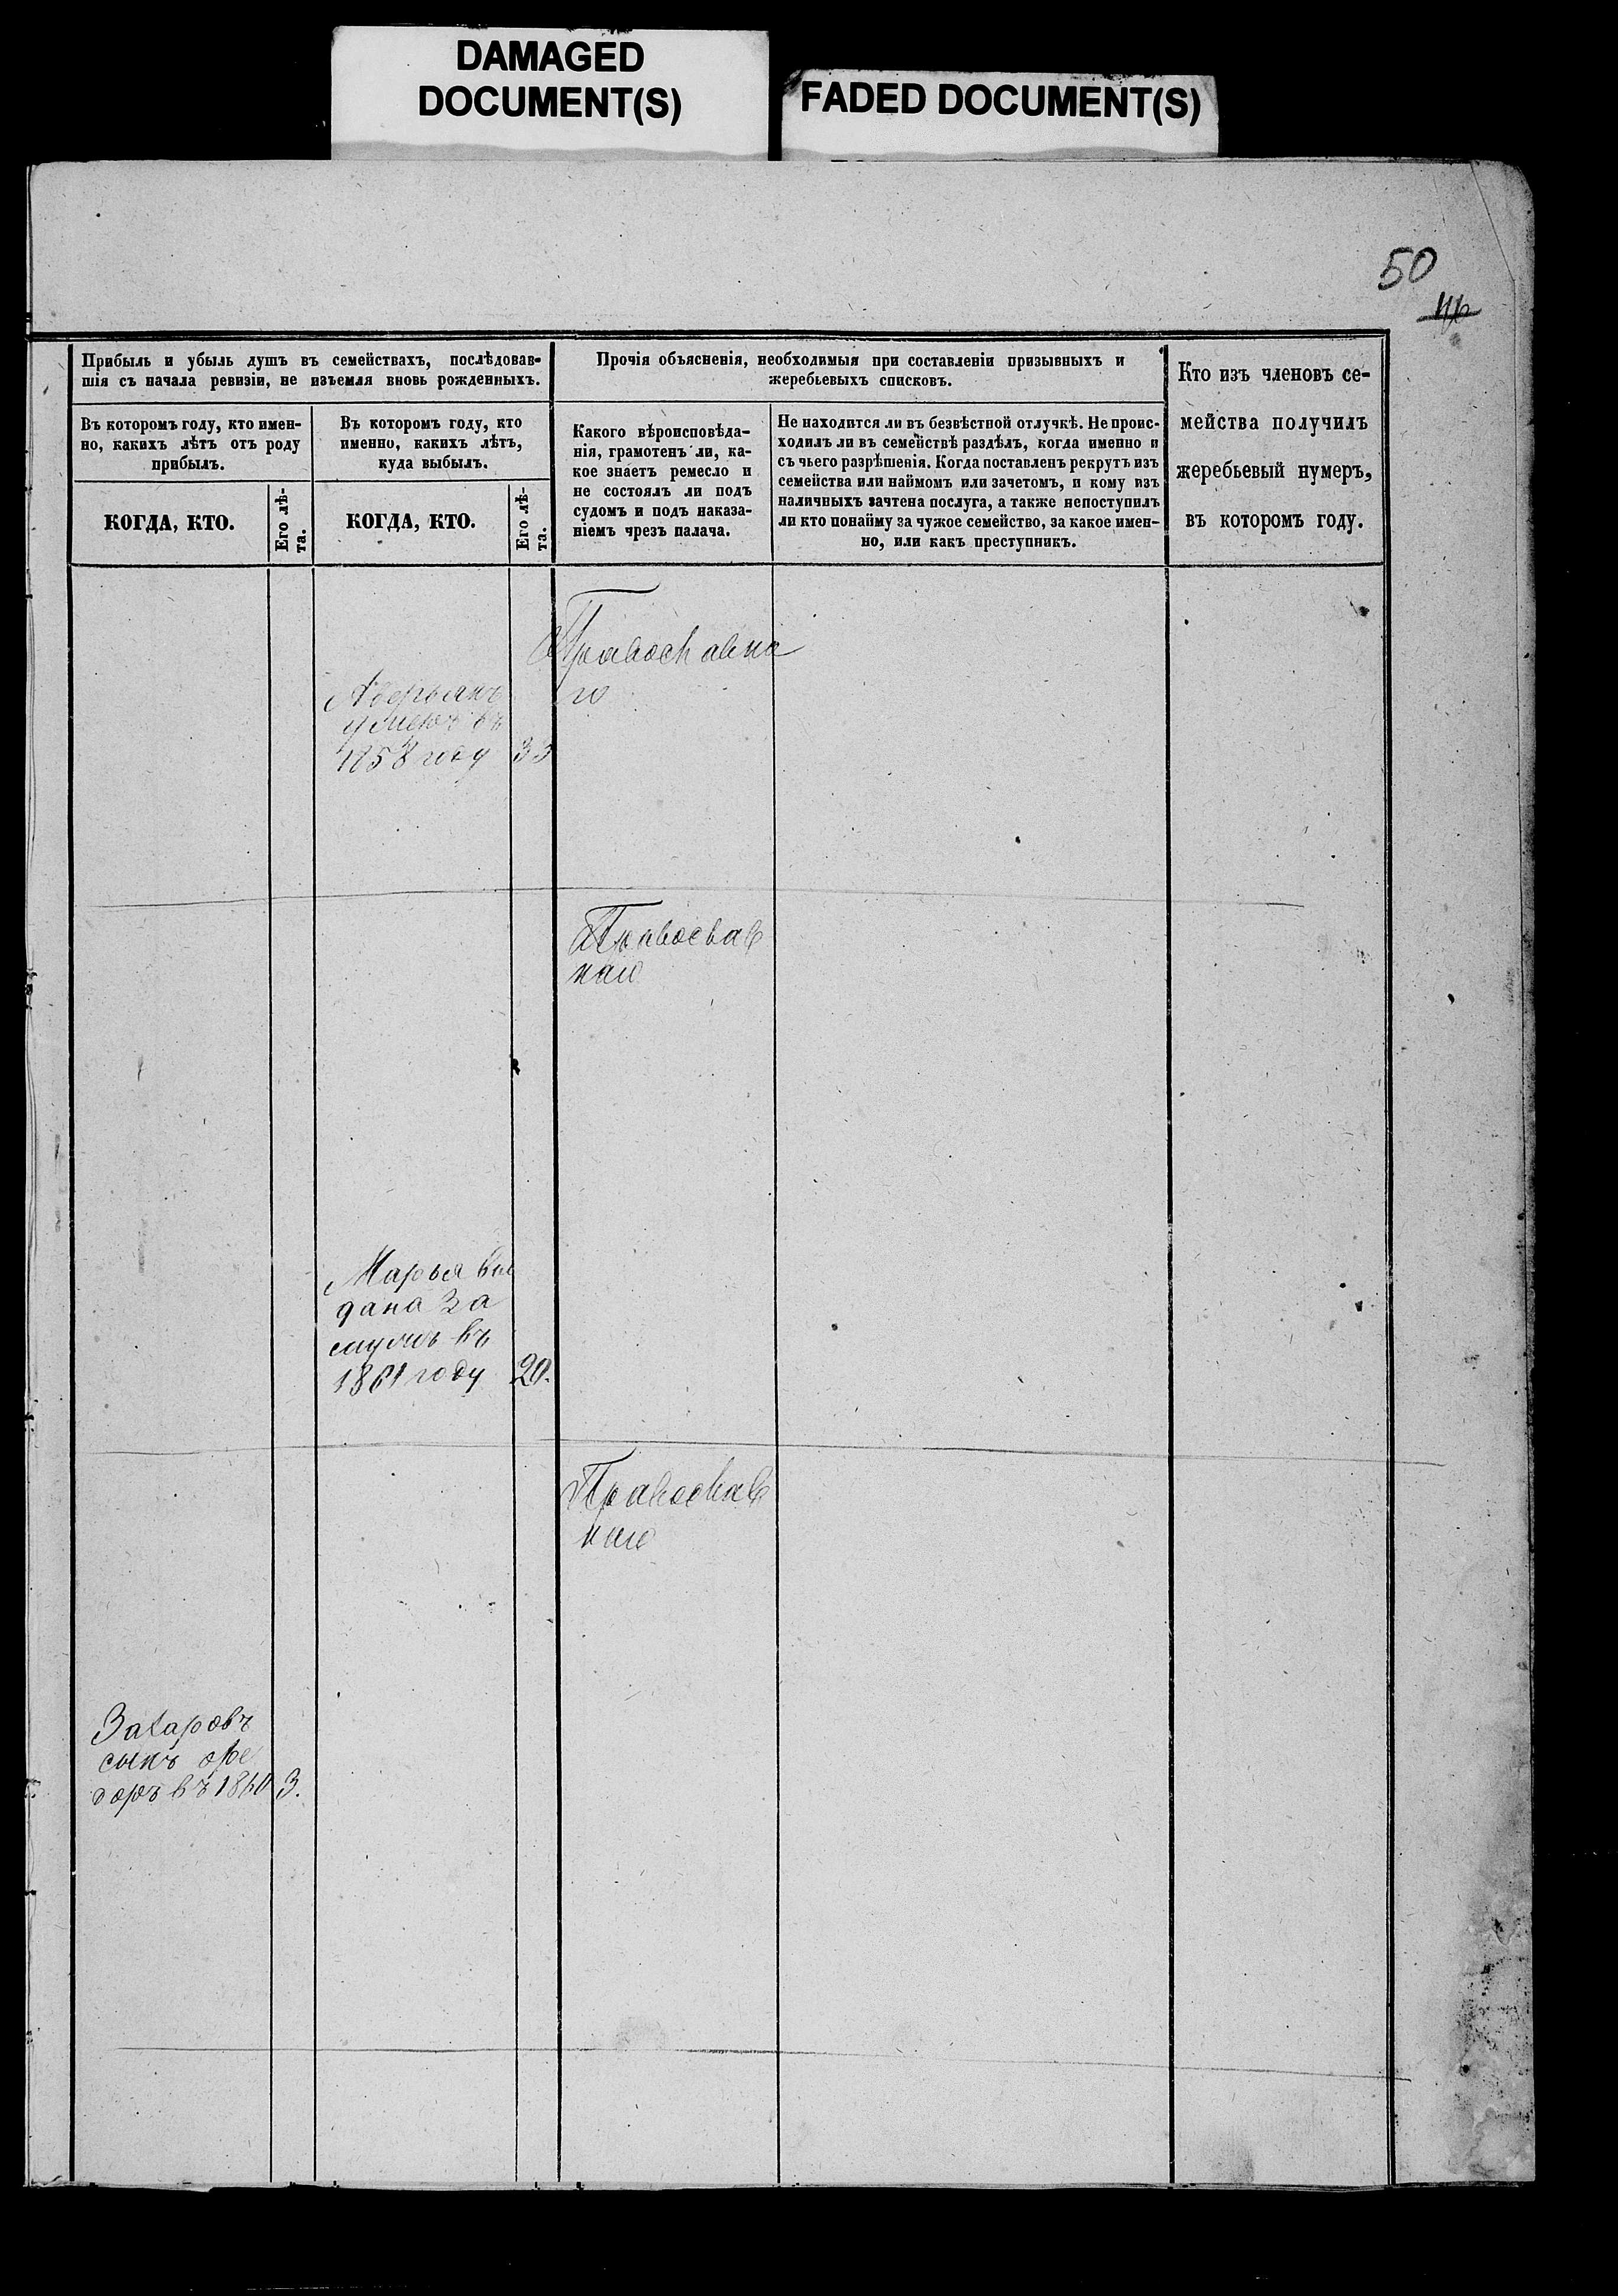 DAMAGED
DOCUMENT(S)
FADED DOCUMENT(S)
50
Прибыль и убыль душъ въ семействахъ, послѣдовав-
шія съ начала ревизіи, не изъемля вновь рожденныхъ.
Въ которомъ году, кто имен-
но, какихъ лѣтъ отъ роду
прибылъ.
КОГДА, КТО.
Его лѣ-
та.
Въ которомъ году, кто
именно, какихъ лѣтъ,
куда выбылъ.
КОГДА, КТО.
Его лѣ-
та.
Прочія объясненія, необходимыя при составленіи призывныхъ и
жеребьевыхъ списковъ.
Какого вѣроисповѣда-
нія, грамотенъ ли, ка-
кое знаетъ ремесло и
не состоялъ ли подъ
судомъ и подъ наказа-
ніемъ чрезъ палача.
Не находится ли въ безвѣстной отлучкѣ. Не проис-
ходилъ ли въ семействѣ раздѣлъ, когда именно и
съ чьего разрѣшенія. Когда поставленъ рекрутъ изъ
семейства или наймомъ или зачетомъ, и кому изъ
наличныхъ зачтена послуга, а также непоступилъ
ли кто понайму за чужое семейство, за какое имен-
но, или какъ преступникъ.
Кто изъ членовъ се-
мейства получилъ
жеребьевый нумеръ,
въ которомъ году.
Православна
го
Аверьянъ
умеръ въ
1858 году 33
Православ
наго
Марья вы
дана за
мужъ въ
1861 году 20.
Православ
наго
Захаровъ
сынъ Фе
доръ въ 1860 3.